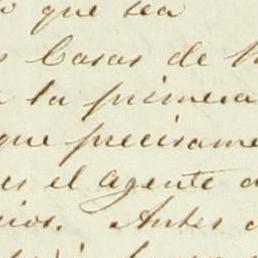 que sea
Casas de
la primera
que precisame
es el agente
cios. Antes